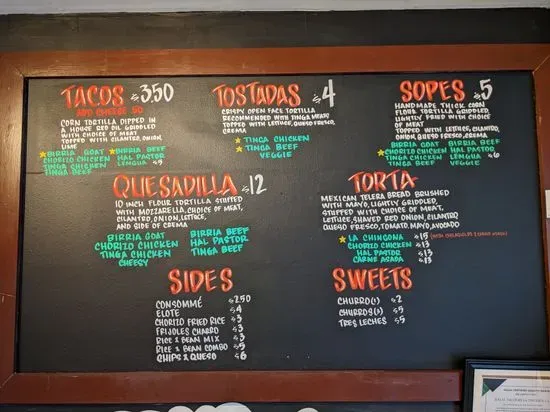 TACOS $3.50
ADD CHEESE .50
CORN TORTILLA DIPPED IN
A HOUSE RED OIL GRIDDLED
WITH CHOICE OF MEAT
TOPPED WITH CILANTRO, ONION,
LIME
BIRRIA GOAT BIRRIA BEEF
CHORIZO CHICKEN HAL PASTOR
TINGA CHICKEN LENGUA
TINGA BEEF
TOSTADAS $4
CRISPY OPEN FACE TORTILLA
RECOMMENDED WITH TINGA MEATS
TOPPED WITH LETTUCE, QUESO FRESCO,
CREMA
TINGA CHICKEN
TINGA BEEF
VEGGIE
SOPES $5
HANDMADE THICK CORN
FLOUR TORTILLA GRIDDLED,
LIGHTLY FRIED WITH CHOICE
OF MEAT
TOPPED WITH LETTUCE, CILANTRO,
ONION, QUESO FRESCO, CREMA
BIRRIA GOAT BIRRIA BEEF
CHORIZO CHICKEN HAL PASTOR
TINGA CHICKEN LENGUA $6
TINGA BEEF VEGGIE
QUESADILLA $12
10 INCH FLOUR TORTILLA STUFFED
WITH MOZZARELLA, CHOICE OF MEAT,
CILANTRO, ONION, LETTUCE,
AND SIDE OF CREMA
BIRRIA GOAT BIRRIA BEEF
CHORIZO CHICKEN HAL PASTOR
TINGA CHICKEN TINGA BEEF
CHEESY
TORTA
MEXICAN TELERA BREAD BRUSHED
WITH MAYO, LIGHTLY GRIDDLED,
STUFFED WITH CHOICE OF MEAT,
LETTUCE, SHAVED RED ONION, CILANTRO
QUESO FRESCO, TOMATO, MAYO, AVOCADO
LA CHINGONA $15
CHORIZO CHICKEN $13
HAL PASTOR $13
CARNE ASADA $13
SIDES
CONSOMMÉ $2.50
ELOTE $4
CHORIZO FRIED RICE $3
FRIJOLES CHARRO $3
RICE & BEAN MIX $3
RICE & BEAN COMBO $5
CHIPS & QUESO $6
SWEETS
CHURRO(1) $2
CHURROS(3) $5
TRES LECHES $5